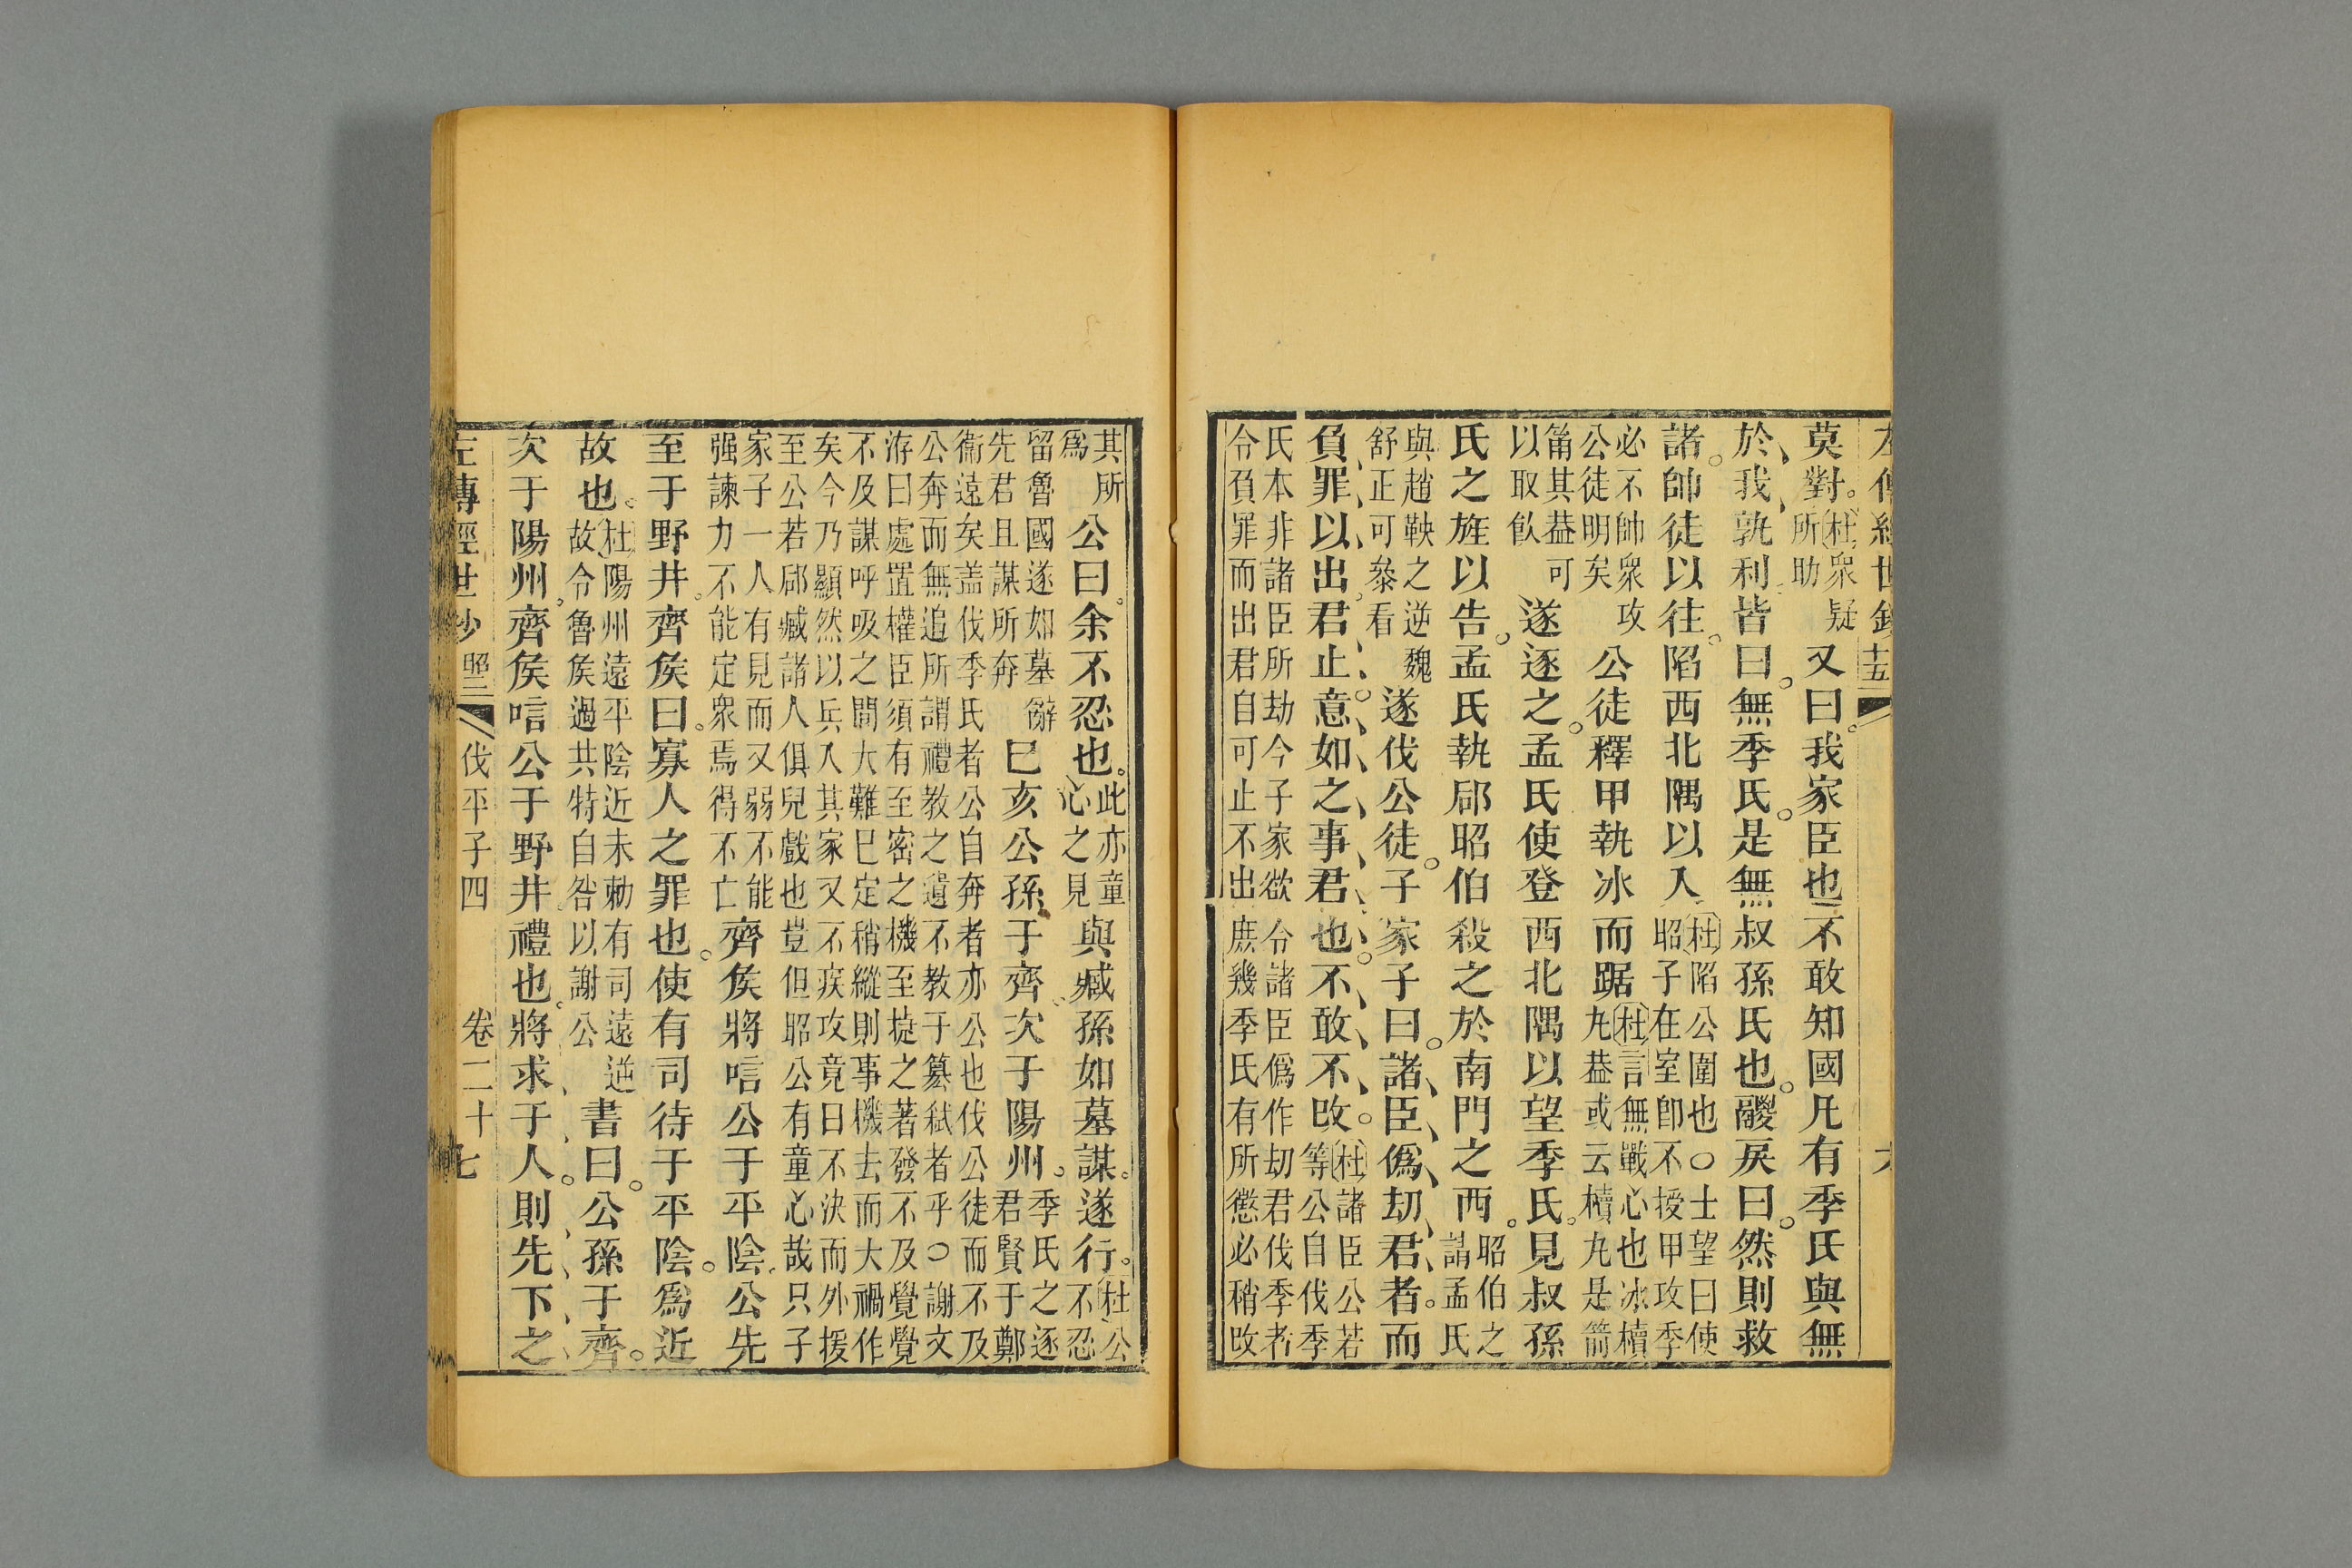 莫對。杜衆疑
所助
又曰。我家臣也不敢知國凡有季氏與無
於我孰利皆曰。無季氏。是無叔孫氏也。鬷戾曰。然則救
諸。帥徒以往。陷西北隅以入
杜陷公圍也○士望曰使
昭子在室卽不授甲攻季
必不帥衆攻
公徒明矣
公徒釋甲執冰而踞
杜言無戰心也冰櫝
丸葢或云櫝丸是箭
筩其葢可
以取飮
遂逐之。孟氏使登西北隅以望季氏。見叔孫
氏之旌以告。孟氏執郈昭伯殺之於南門之西。
昭伯之
請孟氏
與趙鞅之逆魏
舒正可叅看
遂伐公徒。子家子曰。諸臣僞劫君者。而
負罪以出。君止。意如之事君也。不敢不改。
杜諸臣公若
等公自伐季
氏本非諸臣所劫今子家欲令諸臣僞作刧君伐季者
令負罪而出君自可止不出庶幾季氏有所懲必稍改
其所
爲
公曰。余不忍也。
此亦童
心之見
與臧孫如墓謀。遂行。
杜公
不忍
留魯國遂如墓辭
先君且謀所奔
巳亥公孫于齊。次于陽州。
季氏之逐
君賢于鄭
衞遠矣盖伐季氏者公自奔者亦公也伐公徒而不及
公奔而無追所謂禮教之遺不教于簒弑者乎○謝文
洊曰處置權臣須有至密之機至㨗之著發不及覺覺
不及謀呼吸之間大難巳定稍縱則事機去而大禍作
矣今乃顯然以兵入其家又不疾攻竟日不決而外援
至公若郈臧諸人俱兒戲也豈但昭公有童心哉只子
家子一人有見而又弱不能
强諫力不能定衆焉得不亡
齊侯將唁公于平陰。公先
至于野井。齊侯曰。寡人之罪也。使有司待于平陰。爲近
故也。
杜陽州遠平陰近未勑有司遠逆
故令魯侯過共特自咎以謝公
書曰。公孫于齊。
次于陽州。齊侯唁公于野井。禮也。將求于人。則先下之
左傳經世鈔 昭二 伐平子四 卷二十 七